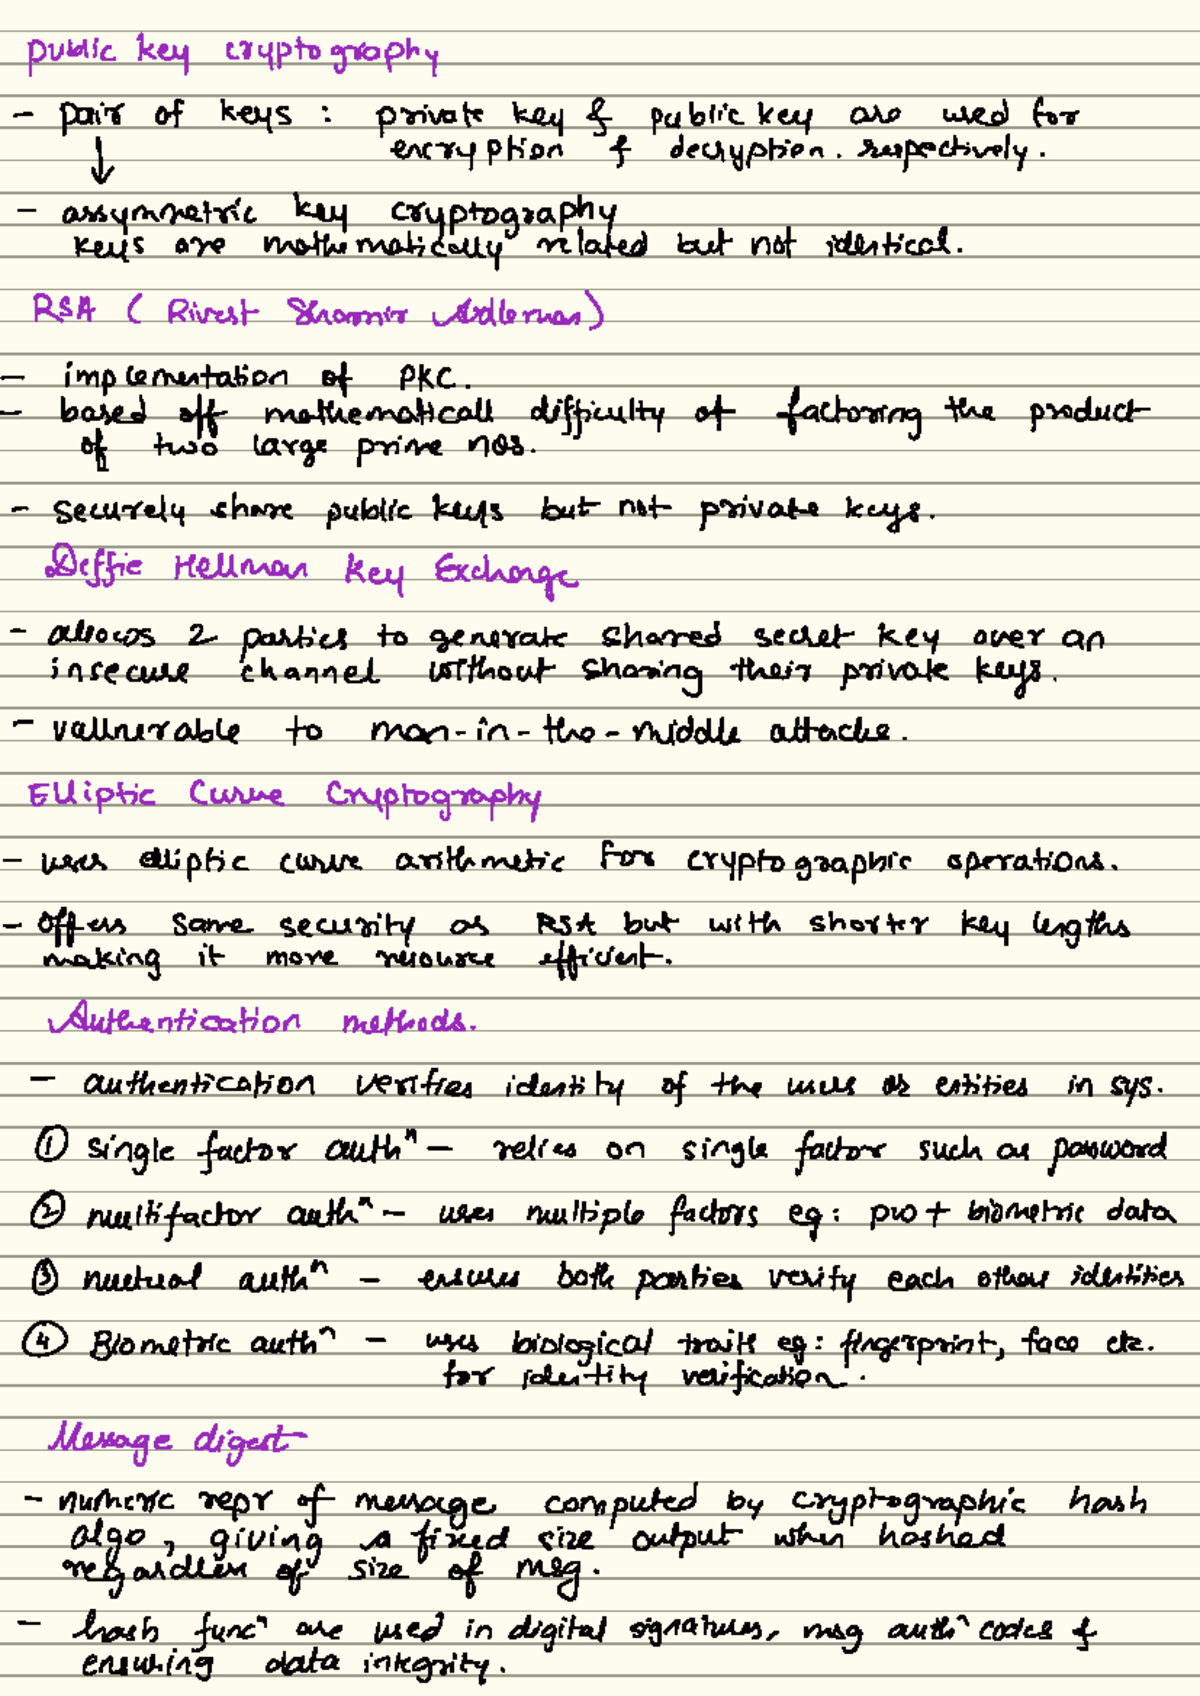 public key cryptography
- pair of keys : private key & public key are used for
encryption & decryption. respectively.
↓
- assymmetric key cryptography
keys are mathematically related but not identical.
RSA ( Rivest Shamir Adleman)
- implementation of PKC.
- based off mathematicall difficulty of factoring the product
of two large prime nos.
- securely share public keys but not private keys.
Deffie Hellman Key Exchange
- allows 2 parties to generate shared secret key over an
insecure channel without sharing their private keys.
- vullnerable to man-in-the-middle attacks.
Elliptic Curve Cryptography
- uses elliptic curve arithmetic for cryptographic operations.
- offers same security as RSA but with shorter key lengths
making it more resource efficient.
Authentication methods.
- authentication verifies identity of the users or entities in sys.
① single factor authⁿ - relies on single factor such as password
② multifactor authⁿ - uses multiple factors eg: pw + biometric data
③ mutual authⁿ - ensures both parties verify each other identities
④ Biometric authⁿ - uses biological traits eg: fingerprint, face etc.
for identity verification.
Message digest
- numeric repr of message computed by cryptographic hash
algo, giving a fixed size output when hashed
regardless of size of msg.
- hash funcⁿ are used in digital signatures, msg authⁿ codes &
ensuring data integrity.